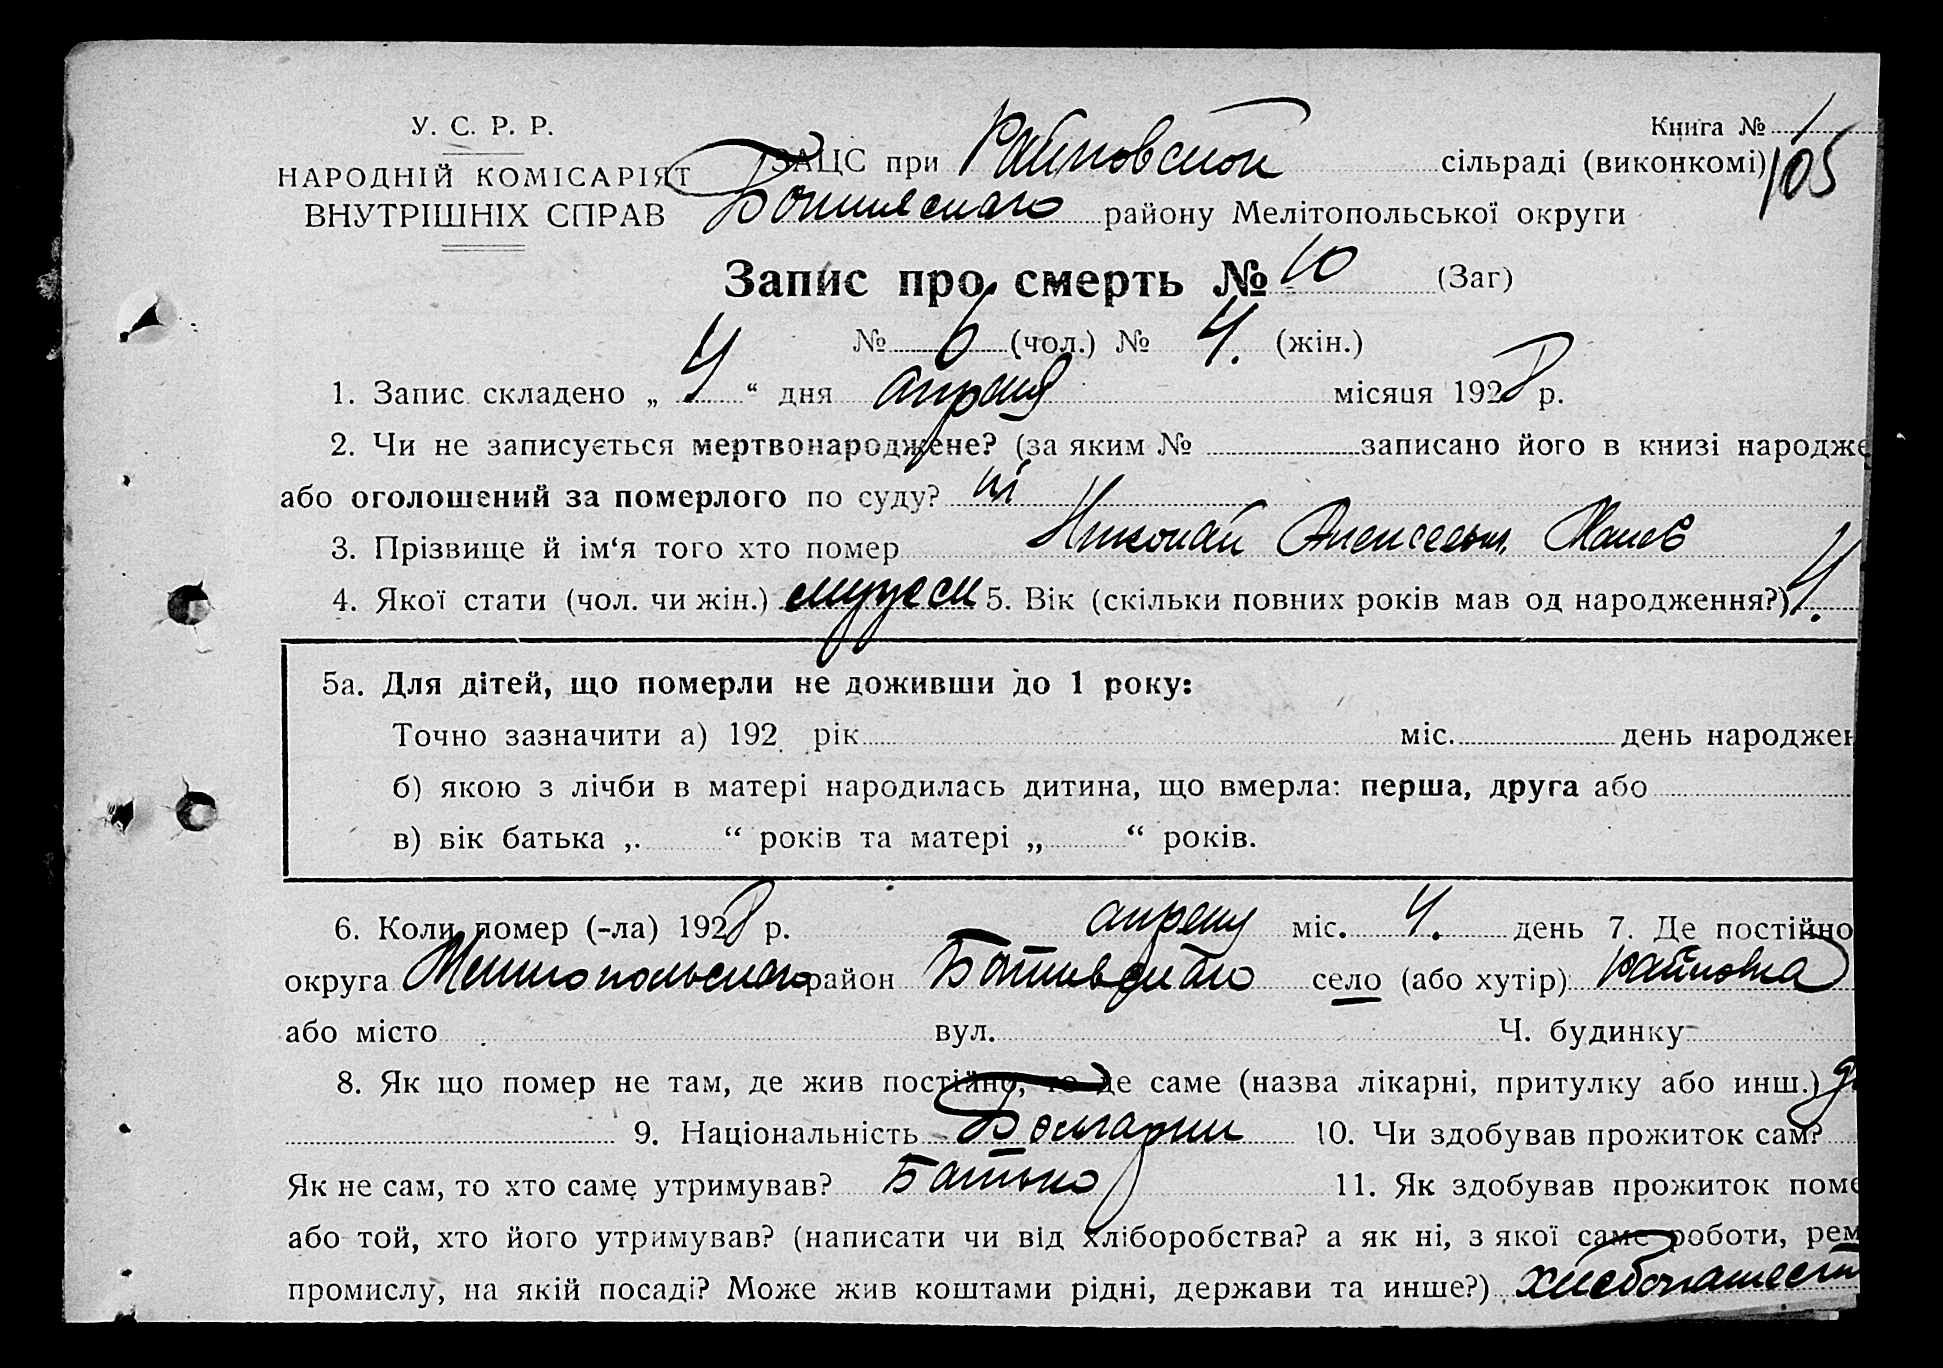 У. С. Р. Р.
НАРОДНІЙ КОМІСАРІЯТ
ВНУТРІШНІХ СПРАВ
Книга № 1
105
ЗАЦС при Райновской сільраді (виконкомі)
району Мелітопольської округи
Запис про смерть № 10 (Заг)
№ 6 (чол.) № 4. (жін.)
1. Запис складено „ 4 “ дня апреля місяця 1928 р.
2. Чи не записується мертвонароджене? (за яким № записано його в книзі народже
або оголошений за померлого по суду? ні
3. Прізвище й ім‘я того хто помер Николай Алексеевич
4. Якої стати (чол. чи жін.) мужески 5. Вік (скільки повних років мав од народження?) 4.
5а. Для дітей, що померли не доживши до 1 року:
Точно зазначити а) 192 рік міс. день народжен
б) якою з лічби в матері народилась дитина, що вмерла: перша, друга або
в) вік батька „ “ років та матері „ “ років.
6. Коли помер (-ла) 1928 р. апрель міс. 4. день 7. Де постійно
округа Мелитопольского район село (або хутір) Райновка
або місто вул. Ч. будинку
8. Як що помер не там, де жив постійно, то де саме (назва лікарні, притулку або инш.)
9. Національність Болгарин 10. Чи здобував прожиток сам?
Як не сам, то хто саме утримував? Батько 11. Як здобував прожиток поме
або той, хто його утримував? (написати чи від хліборобства? а як ні, з якої саме роботи, рем
промислу, на якій посаді? Може жив коштами рідні, держави та инше?) хлебопашест